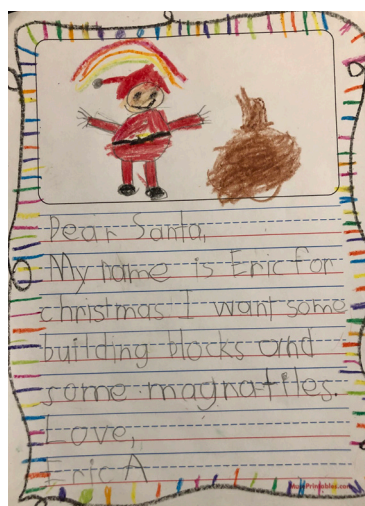 Dear Santa,
My name is Eric for
christmas I want some
building blocks and
some magnatiles.
Love,
Eric A